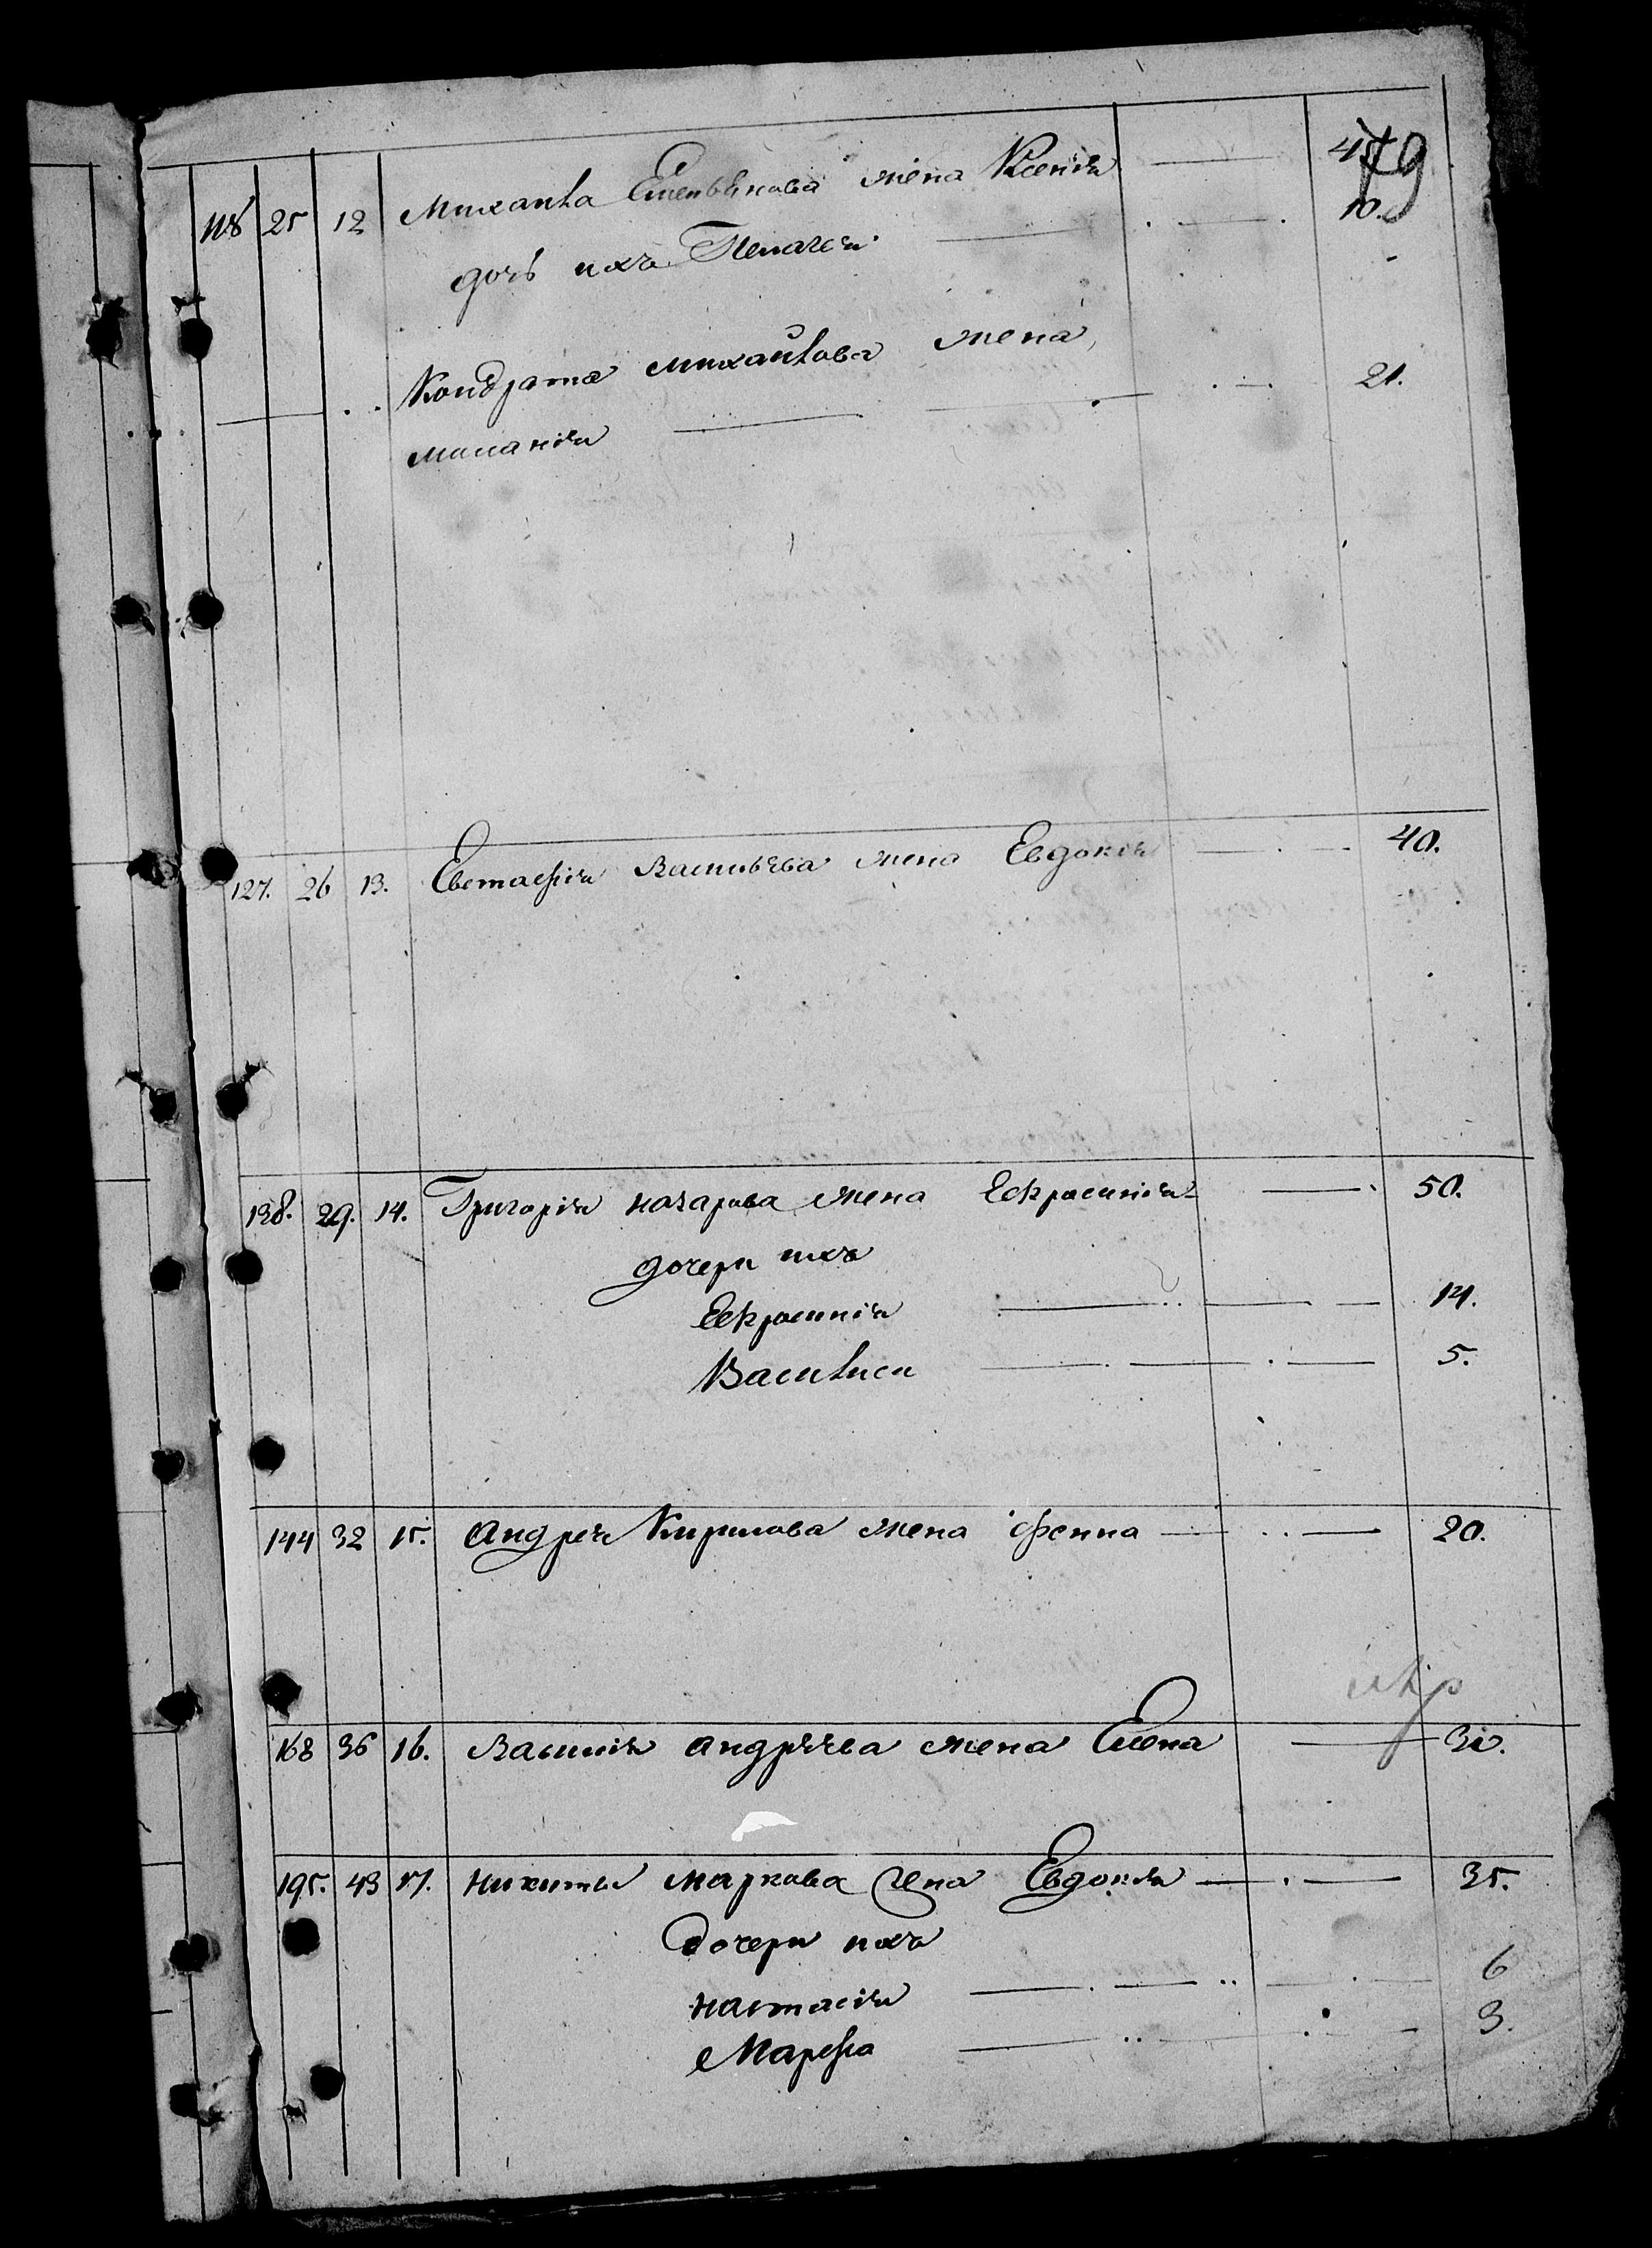 79
118 25 12 Михаила Емельянова жена Ксенiя 45
дочь ихъ Пелагея 10.
Кондрата Михайлова жена 21.
Маланiя
127. 26 13. Евстафiя Васильева жена Евдокiя 40.
138. 29. 14. Григорiя Назарова жена Ефросинiя 50.
дочери ихъ
Ефросинiя 14.
Василиса 5.
144 32 15. Андрея Кирилова жена Фекла 20.
168 36 16. Василiя Андрѣева жена Елена 30.
195. 43 17. Никиты Маркова жена Евдокiя 35.
Дочери ихъ
Настасiя 6
Марфа 3.